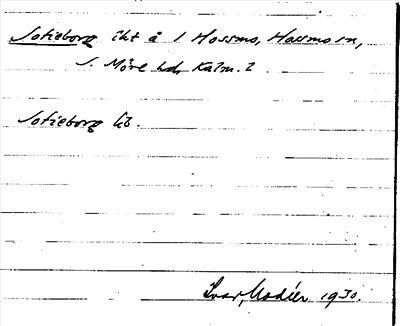 Sofieborg lht å 1 Hossmo, Hossmo sn,
S. Möre hd, Kalm. l
Sofieborg
Ivar Modéer 1930.